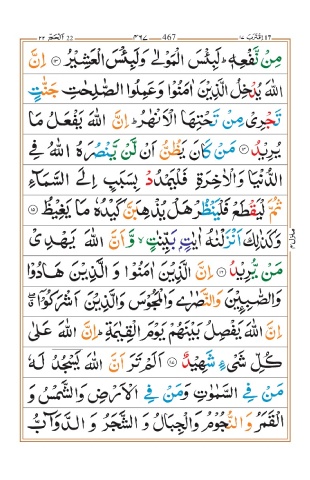 اقترب ١٧ 467 ٤٦٧ الحج 22 ٢٢
مِنْ نَّفْعِهٖ ؕ لَبِئْسَ الْمَوْلٰى وَلَبِئْسَ الْعَشِيْرُ ﴿۱۳﴾ اِنَّ
اللّٰهَ يُدْخِلُ الَّذِيْنَ اٰمَنُوْا وَعَمِلُوا الصّٰلِحٰتِ جَنّٰتٍ
تَجْرِىْ مِنْ تَحْتِهَا الْاَنْهٰرُ ؕ اِنَّ اللّٰهَ يَفْعَلُ مَا
يُرِيْدُ ﴿۱۴﴾ مَنْ كَانَ يَظُنُّ اَنْ لَّنْ يَّنْصُرَهُ اللّٰهُ فِى
الدُّنْيَا وَالْاٰخِرَةِ فَلْيَمْدُدْ بِسَبَبٍ اِلَى السَّمَآءِ
ثُمَّ لْيَقْطَعْ فَلْيَنْظُرْ هَلْ يُذْهِبَنَّ كَيْدُهٗ مَا يَغِيْظُ ﴿۱۵﴾
وَكَذٰلِكَ اَنْزَلْنٰهُ اٰيٰتٍۭ بَيِّنٰتٍ ۙ وَّاَنَّ اللّٰهَ يَهْدِىْ
مَنْ يُّرِيْدُ ﴿۱۶﴾ اِنَّ الَّذِيْنَ اٰمَنُوْا وَ الَّذِيْنَ هَادُوْا
وَالصّٰبِـِٕيْنَ وَالنَّصٰرٰى وَالْمَجُوْسَ وَالَّذِيْنَ اَشْرَكُوْۤا ۖ
اِنَّ اللّٰهَ يَفْصِلُ بَيْنَهُمْ يَوْمَ الْقِيٰمَةِ ؕ اِنَّ اللّٰهَ عَلٰى
كُلِّ شَىْءٍ شَهِيْدٌ ﴿۱۷﴾ اَلَمْ تَرَ اَنَّ اللّٰهَ يَسْجُدُ لَهٗ
مَنْ فِى السَّمٰوٰتِ وَمَنْ فِى الْاَرْضِ وَالشَّمْسُ وَ
الْقَمَرُ وَالنُّجُوْمُ وَالْجِبَالُ وَ الشَّجَرُ وَ الدَّوَآبُّ